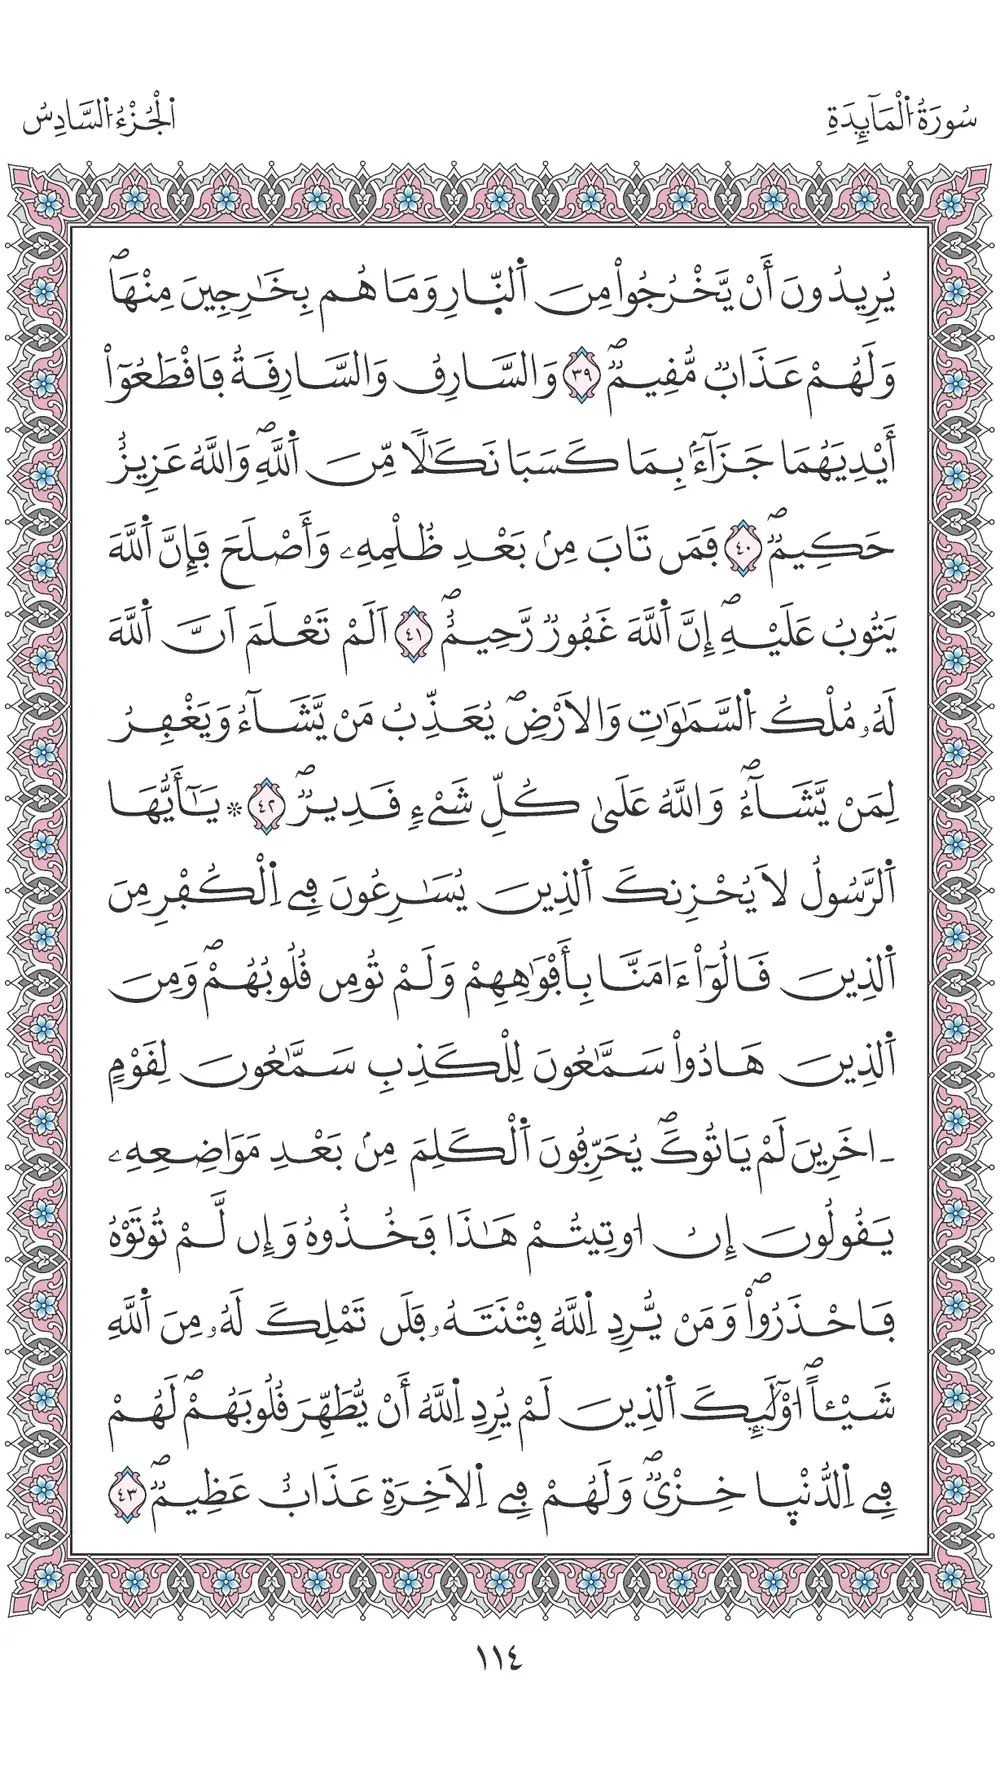 سُورَةُ اُ۬لْمَآئِدَةِ
اُ۬لْجُزْءُ اُ۬لسَّادِسُ
يُرِيدُونَ أَنْ يَّخْرُجُواْ مِنَ اَ۬لنّ۪ارِ وَمَا هُم بِخَٰرِجِينَ مِنْهَاۖ
وَلَهُمْ عَذَابٞ مُّفِيمٞۖ ٣٩ وَالسَّارِفُ وَالسَّارِفَةُ ڢَافْطَعُوٓاْ
أَيْدِيَهُمَا جَزَآءَۢ بِمَا كَسَبَا نَكَٰلاٗ مِّنَ اَ۬للَّهِۖ وَاللَّهُ عَزِيزٌ
حَكِيمٞۖ ٤٠ ڢَمَن تَابَ مِنۢ بَعْدِ ظُلْمِهِۦ وَأَصْلَحَ ڢَإِنَّ اَ۬للَّهَ
يَتُوبُ عَلَيْهِۖ إِنَّ اَ۬للَّهَ غَڢُورٞ رَّحِيمٌۖ ٤١ اَلَمْ تَعْلَمَ اَنَّ اَ۬للَّهَ
لَهُۥ مُلْكُ اُ۬لسَّمَٰوَٰتِ وَالَارْضِۖ يُعَذِّبُ مَنْ يَّشَآءُ وَيَغْڢِرُ
لِمَنْ يَّشَآءُۖ وَاللَّهُ عَلَىٰ كُلِّ شَےْءٖ فَدِيرٞۖ ٤٢ * يَٰٓأَيُّهَا
اَ۬لرَّسُولُ لَا يُحْزِنكَ اَ۬لذِينَ يُسَٰرِعُونَ ڢِے اِ۬لْكُڢْرِ مِنَ
اَ۬لذِينَ فَالُوٓاْ ءَامَنَّا بِأَڢْوَٰهِهِمْ وَلَمْ تُومِن فُلُوبُهُمْۖ وَمِنَ
اَ۬لذِينَ هَادُواْ سَمَّٰعُونَ لِلْكَذِبِ سَمَّٰعُونَ لِفَوْمٍ
ـ اخَرِينَ لَمْ يَاتُوكَۖ يُحَرِّڢُونَ اَ۬لْكَلِمَ مِنۢ بَعْدِ مَوَاضِعِهِۦ
يَفُولُونَ إِنُ ا۟وتِيتُمْ هَٰذَا ڢَخُذُوهُ وَإِن لَّمْ تُوتَوْهُ
ڢَاحْذَرُواْۖ وَمَنْ يُّرِدِ اِ۬للَّهُ ڢِتْنَتَهُۥ ڢَلَن تَمْلِكَ لَهُۥ مِنَ اَ۬للَّهِ
شَيْـٔاًۖ ا۟وْلَٰٓئِكَ اَ۬لذِينَ لَمْ يُرِدِ اِ۬للَّهُ أَنْ يُّطَهِّرَ فُلُوبَهُمْۖ لَهُمْ
ڢِے اِ۬لدُّنْي۪ا خِزْيٞۖ وَلَهُمْ ڢِے اِ۬لَاخِرَةِ عَذَابٌ عَظِيمٞۖ ٤٣
١١٤